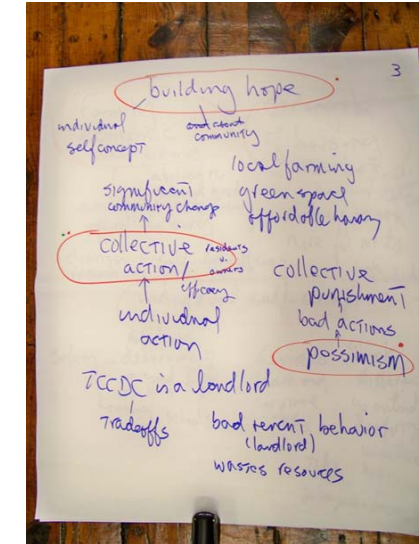 3
building hope
individual
self concept
community
local farming
green space
affordable housing
significant
community change
collective
action/
efficacy
residents
v.
owners
individual
action
collective
punishment
bad actions
possimism
TCCDC is a landlord
Tradeoffs
bad tenent behavior
(landlord)
wastes resources